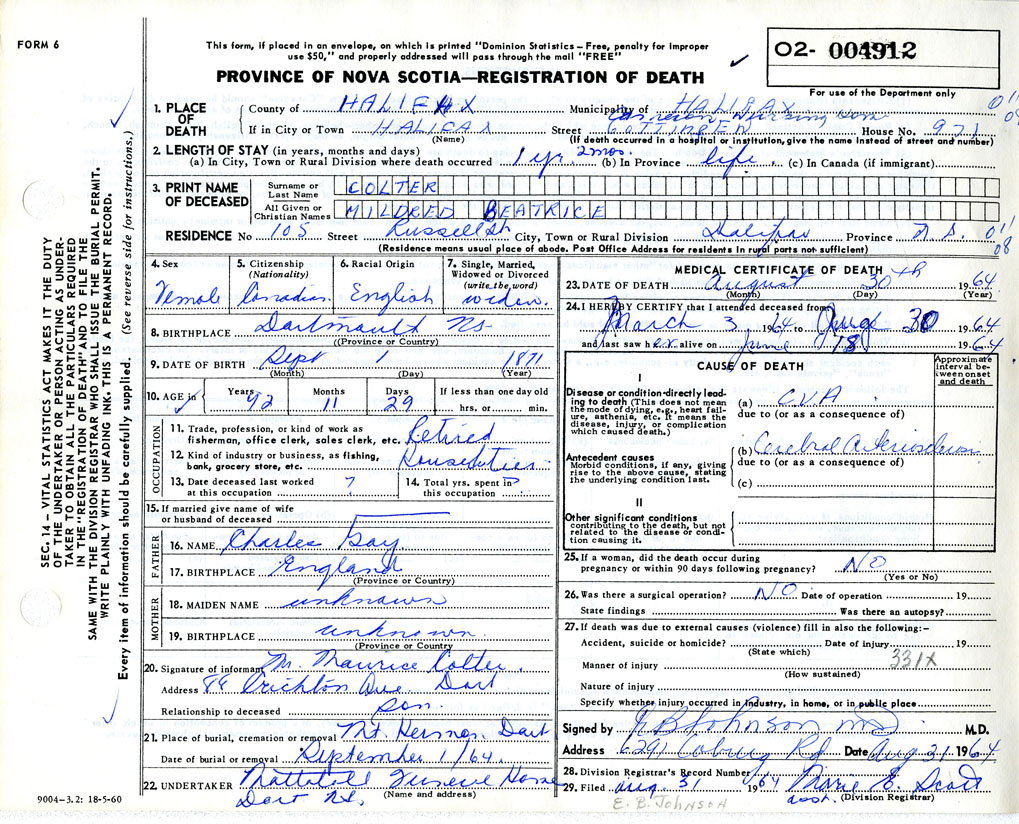 FORM 6
This form, if placed in an envelope, on which is printed "Dominion Statistics – Free, penalty for improper
use $50," and properly addressed will pass through the mail "FREE"
PROVINCE OF NOVA SCOTIA—REGISTRATION OF DEATH
O2- 004912
For use of the Department only
1. PLACE OF DEATH
County of HALIFAX Municipality of HALIFAX
Nursing Home
If in City or Town HALIFAX Street GOTTINGEN House No. 971
(Name) (If death occurred in a hospital or institution, give the name instead of street and number)
011
08
2. LENGTH OF STAY (in years, months and days)
(a) In City, Town or Rural Division where death occurred 1 yr 2 mos. (b) In Province life (c) In Canada (if immigrant)
3. PRINT NAME OF DECEASED
Surname or Last Name COLTER
All Given or Christian Names MILDRED BEATRICE
RESIDENCE No 105 Street Russell St City, Town or Rural Division Halifax Province N.S. 011
08
(Residence means usual place of abode. Post Office Address for residents in rural parts not sufficient)
4. Sex Female
5. Citizenship (Nationality) Canadian
6. Racial Origin English
7. Single, Married, Widowed or Divorced (write the word) widow.
8. BIRTHPLACE Dartmouth NS
(Province or Country)
9. DATE OF BIRTH Sept 1 1871
(Month) (Day) (Year)
10. AGE in Years 92 Months 11 Days 29 If less than one day old
hrs. or min.
OCCUPATION
11. Trade, profession, or kind of work as
fisherman, office clerk, sales clerk, etc. Retired
12. Kind of industry or business, as fishing,
bank, grocery store, etc. Houseduties
13. Date deceased last worked
at this occupation ?
14. Total yrs. spent in
this occupation ?
15. If married give name of wife
or husband of deceased
FATHER
16. NAME Charles Gay
17. BIRTHPLACE England
(Province or Country)
MOTHER
18. MAIDEN NAME unknown
19. BIRTHPLACE unknown.
(Province or Country
20. Signature of informant M. Maurice Colter.
Address Crichton Ave Dart
Relationship to deceased son.
21. Place of burial, cremation or removal Mt. Hermon Dart
Date of burial or removal September 1/64.
22. UNDERTAKER Mattatall Funeral Home
Dart NS. (Name and address)
9004–3.2: 18-5-60
MEDICAL CERTIFICATE OF DEATH
23. DATE OF DEATH August 30th 1964
(Month) (Day) (Year)
24. I HEREBY CERTIFY that I attended deceased from
March 3 1964 to Aug 30 1964
and last saw h er alive on June 18 1964
CAUSE OF DEATH
Approximate interval between onset and death
I
Disease or condition directly leading to death (This does not mean
the mode of dying, e.g., heart failure, asthenia, etc. It means the
disease, injury, or complication
which caused death.)
(a) CVA
due to (or as a consequence of)
Antecedent causes
Morbid conditions, if any, giving
rise to the above cause, stating
the underlying condition last.
(b) Cerebral Arteriosclerosis
due to (or as a consequence of)
(c)
II
Other significant conditions
contributing to the death, but not
related to the disease or condition causing it.
25. If a woman, did the death occur during
pregnancy or within 90 days following pregnancy? NO
(Yes or No)
26. Was there a surgical operation? NO Date of operation 19
State findings Was there an autopsy?
27. If death was due to external causes (violence) fill in also the following:–
Accident, suicide or homicide? Date of injury 19
(State which)
331X
Manner of injury
(How sustained)
Nature of injury
Specify whether injury occurred in industry, in home, or in public place
Signed by Johnson MD M.D.
Address 6291 Coburg Rd Date Aug 31 1964
28. Division Registrar's Record Number
29. Filed Aug. 31 1964 Marie E. Scott
asst. (Division Registrar)
E. B. JOHNSON
SEC. 14 – VITAL STATISTICS ACT MAKES IT THE DUTY
OF THE UNDERTAKER OR PERSON ACTING AS UNDERTAKER TO OBTAIN ALL THE PARTICULARS REQUIRED
IN THE "REGISTRATION OF DEATH" AND TO FILE THE
SAME WITH THE DIVISION REGISTRAR WHO SHALL ISSUE THE BURIAL PERMIT.
WRITE PLAINLY WITH UNFADING INK. THIS IS A PERMANENT RECORD.
Every item of information should be carefully supplied. (See reverse side for instructions.)